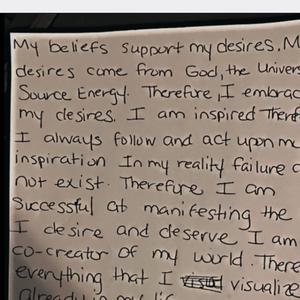 My beliefs support my desires. M
desires come from God, the Univer
Source Energy. Therefore, I embrac
my desires. I am inspired There
I always follow and act upon m
inspiration In my reality failure
not exist. Therefore I am
Successful at manifesting the
I desire and deserve I am
co-creator of my world. There
everything that I visualize
already in my